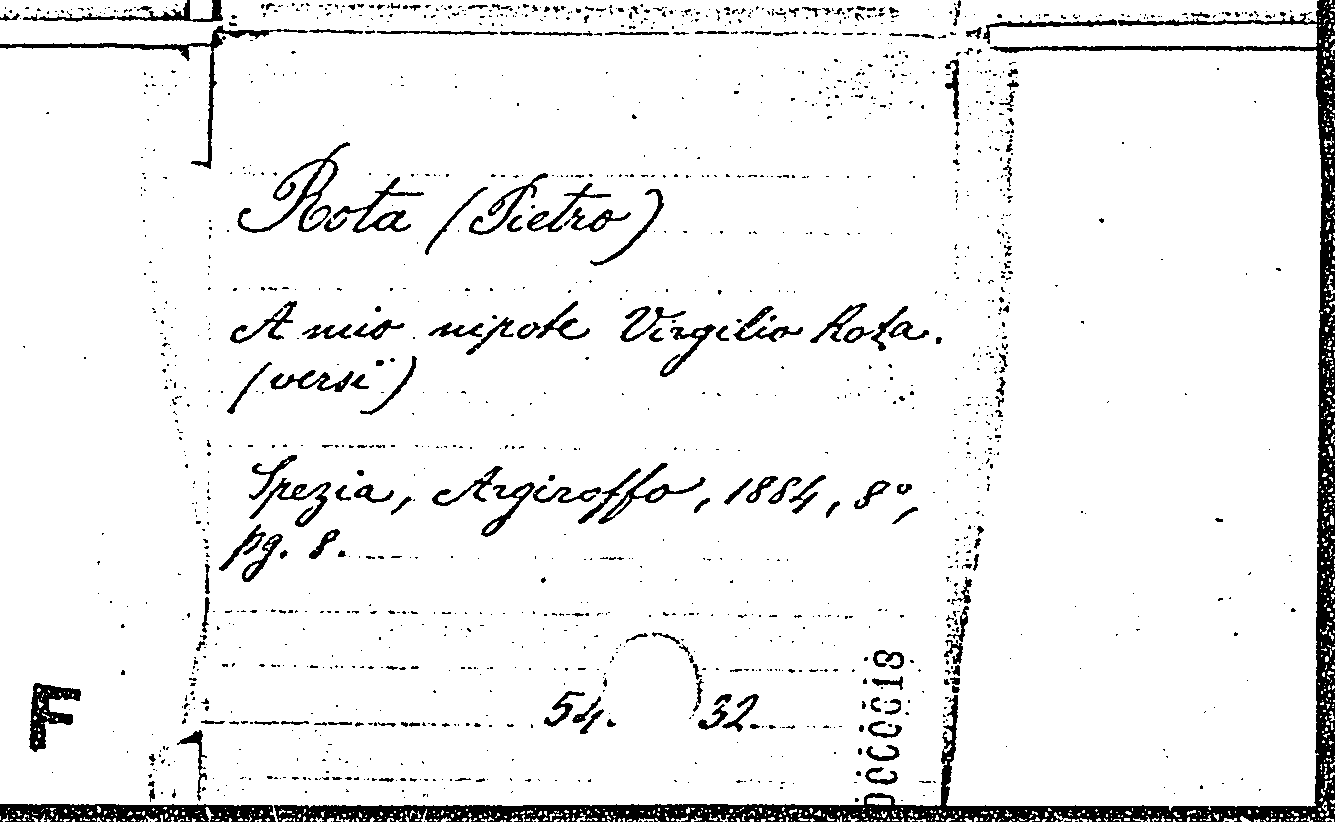 Rota (Pietro)
A mio nipote Virgilio Rota.
(versi)
Spezia, Argiroffo, 1884, 8º,
pg. 8.
54. 32.
F
0000018